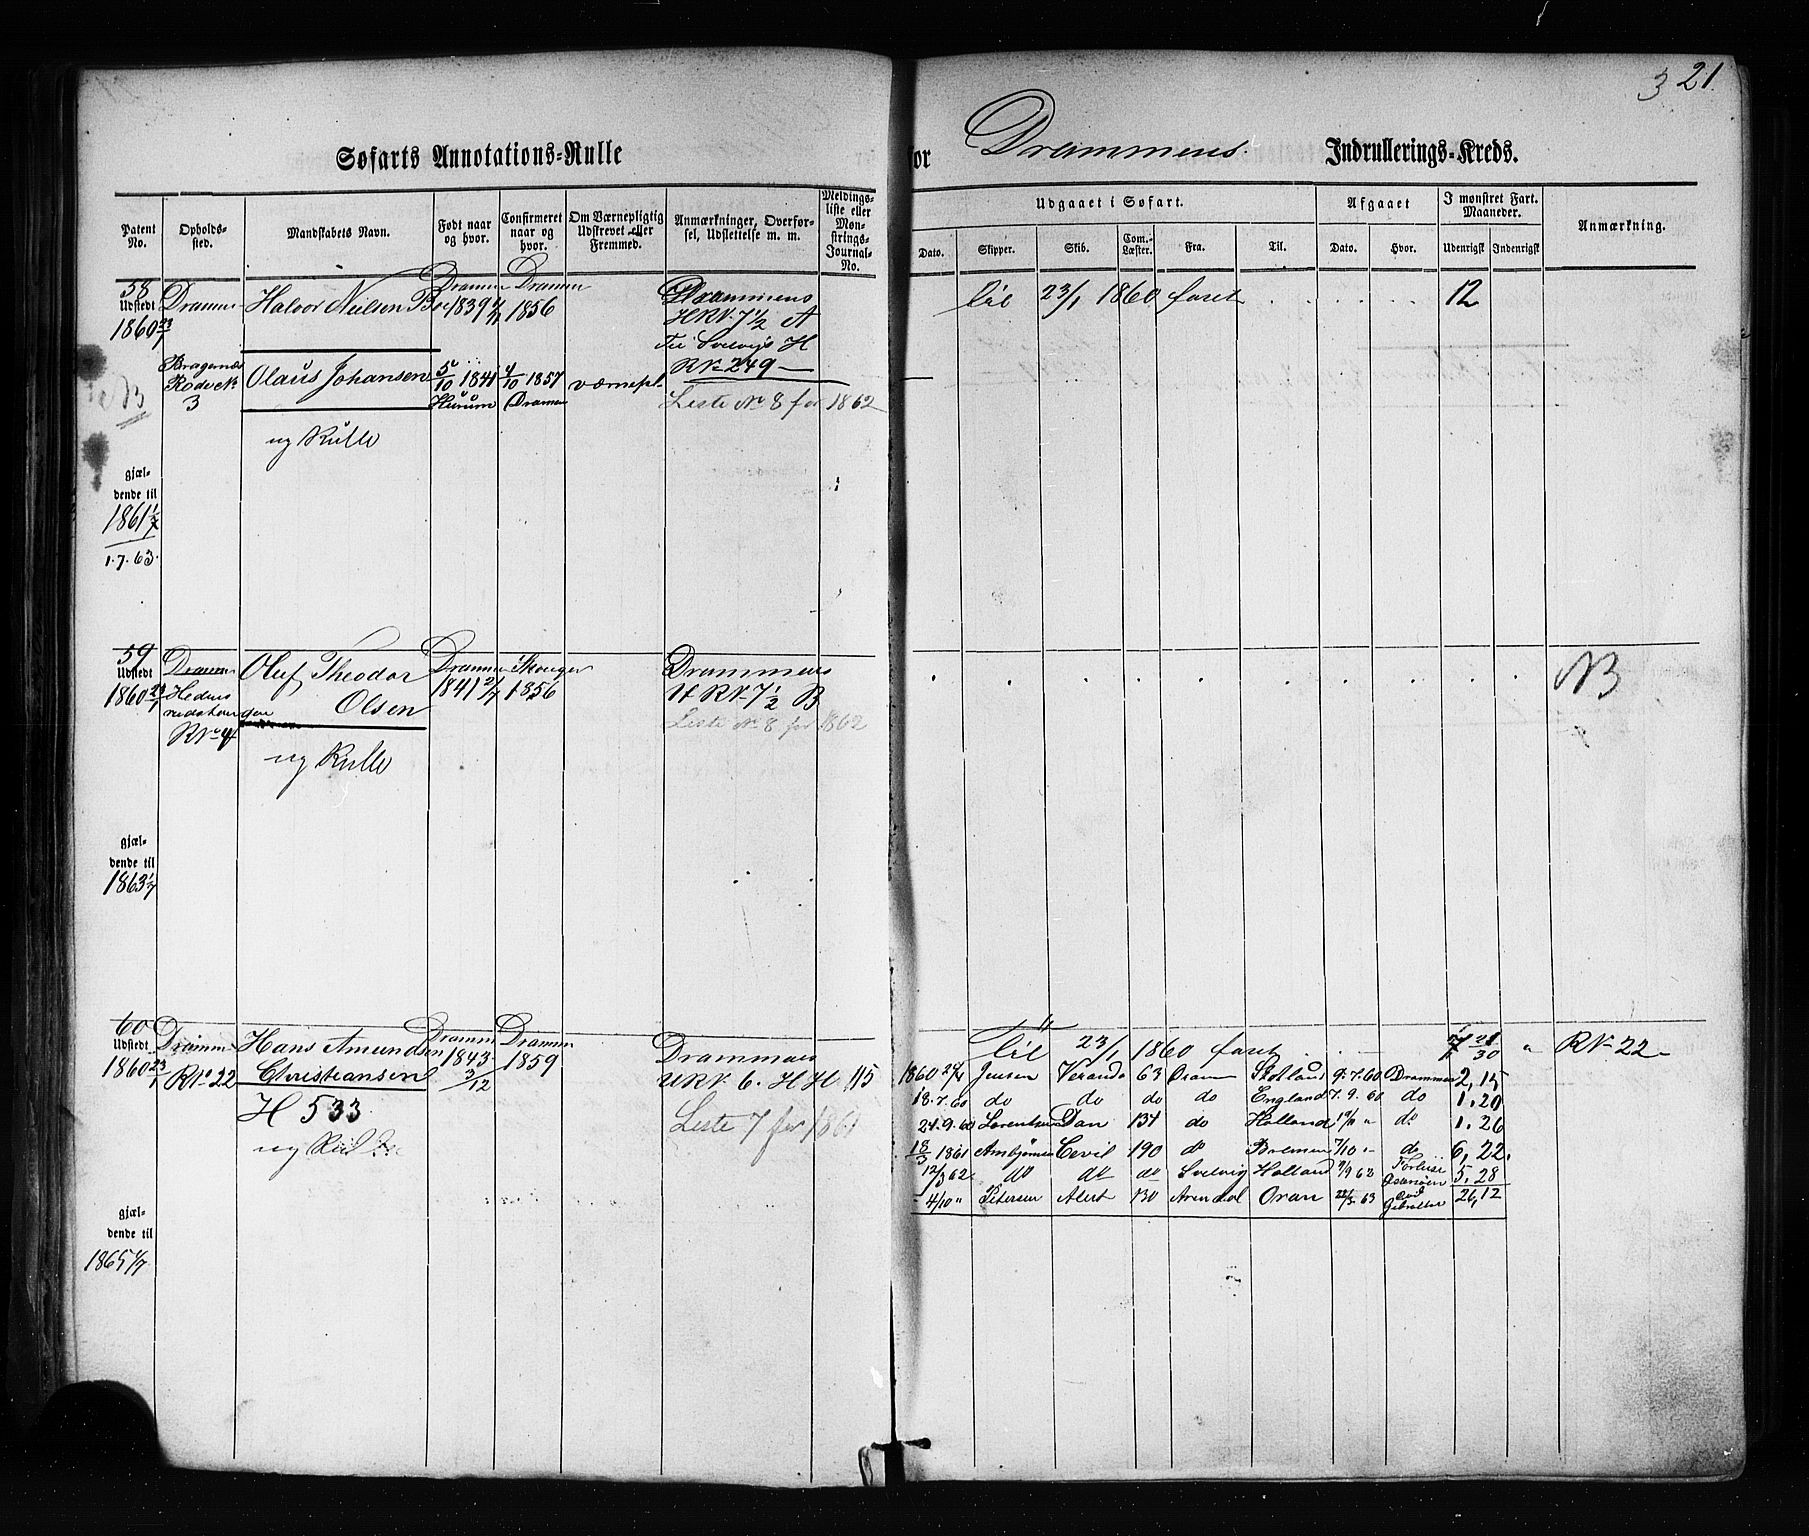 3 21.
Søfarts Annotations-Rulle for Drammens Indrullerings-Kreds.
Patent No.
Opholdssted.
Mandskabets Navn.
Født naar og hvor.
Confirmeret naar og hvor.
Om Værnepligtig Udskrevet eller Fremmed.
Anmærkninger, Overførsel, Udslettelse m. m.
Meldingsliste eller Mønstrings-Journal-No.
Udgaaet i Søfart.
Dato. Skipper. Skib. Com.-Læster. Fra. Til.
Afgaaet
Dato. Hvor.
I mønstret Fart. Maaneder.
Udenrigsk Indenrigsk
Anmærkning.
58 Drammen Drammen Drammens
Udstedt Halvor Nielsen 1839 1856 til 23/1 1860 faret 12
1860 23/1 HRN. 7 1/2 A
Til Svelvigs H
RN. 249
Bragernæs Olaus Johansen 5/10 1841 4/10 1857 værnepl.
3 Hurum Drammen Liste No 8 for 1862
ny Rulle
gjældende til
1861 1/7
1.7.63.
59 Drammen Skouger Drammens
Udstedt Oluf Theodor 1841 2/7 1856 NB
1860 23/1 Olsen RN. 7 1/2 B
RNo 4 Liste No 8 for 1862
ny Rulle
gjældende til
1863 1/7
60 Drammen Drammen
Udstedt Hans Amundsen 1843 1859 Drammens til 23/1 1860 faret RN. 22
1860 23/1 RNo 22 Christiansen 3/12 6. HH 115
H 533 Liste 7 for 1861
ny Rulle
1860 Jensen Veranda 63 Dram Skotland 9.7.60 Drammen 2,15
18.7.60 do do do do England 7.9.60 do 1.20
21.9.60 Lorentsen Dan 134 do Holland do 1.26
1861 Cecil 190 do Bremen 7/10 do 6,22.
12/3 62 do do do Svelvig Holland 5.28
4/10 " Petersen Alert 130 Arendal Oran 63 Gibraltar 26,12
gjældende til
1865 1/7